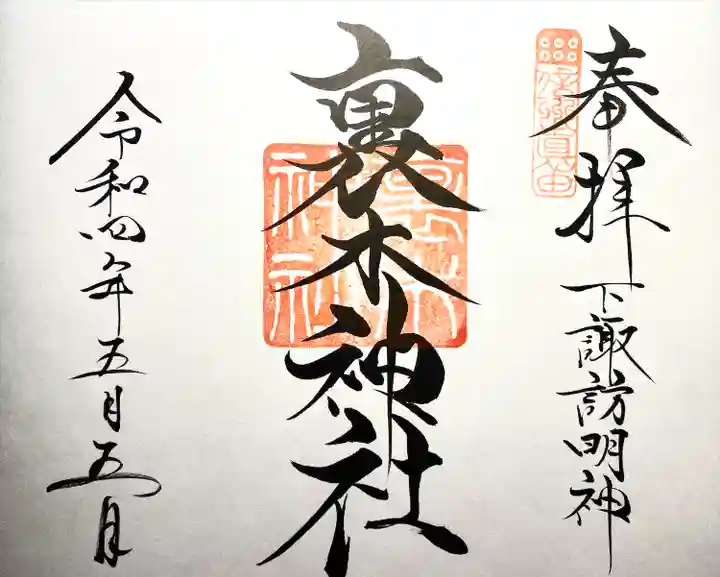 奉拝 下諏訪明神
裏木神社
令和四年五月五日